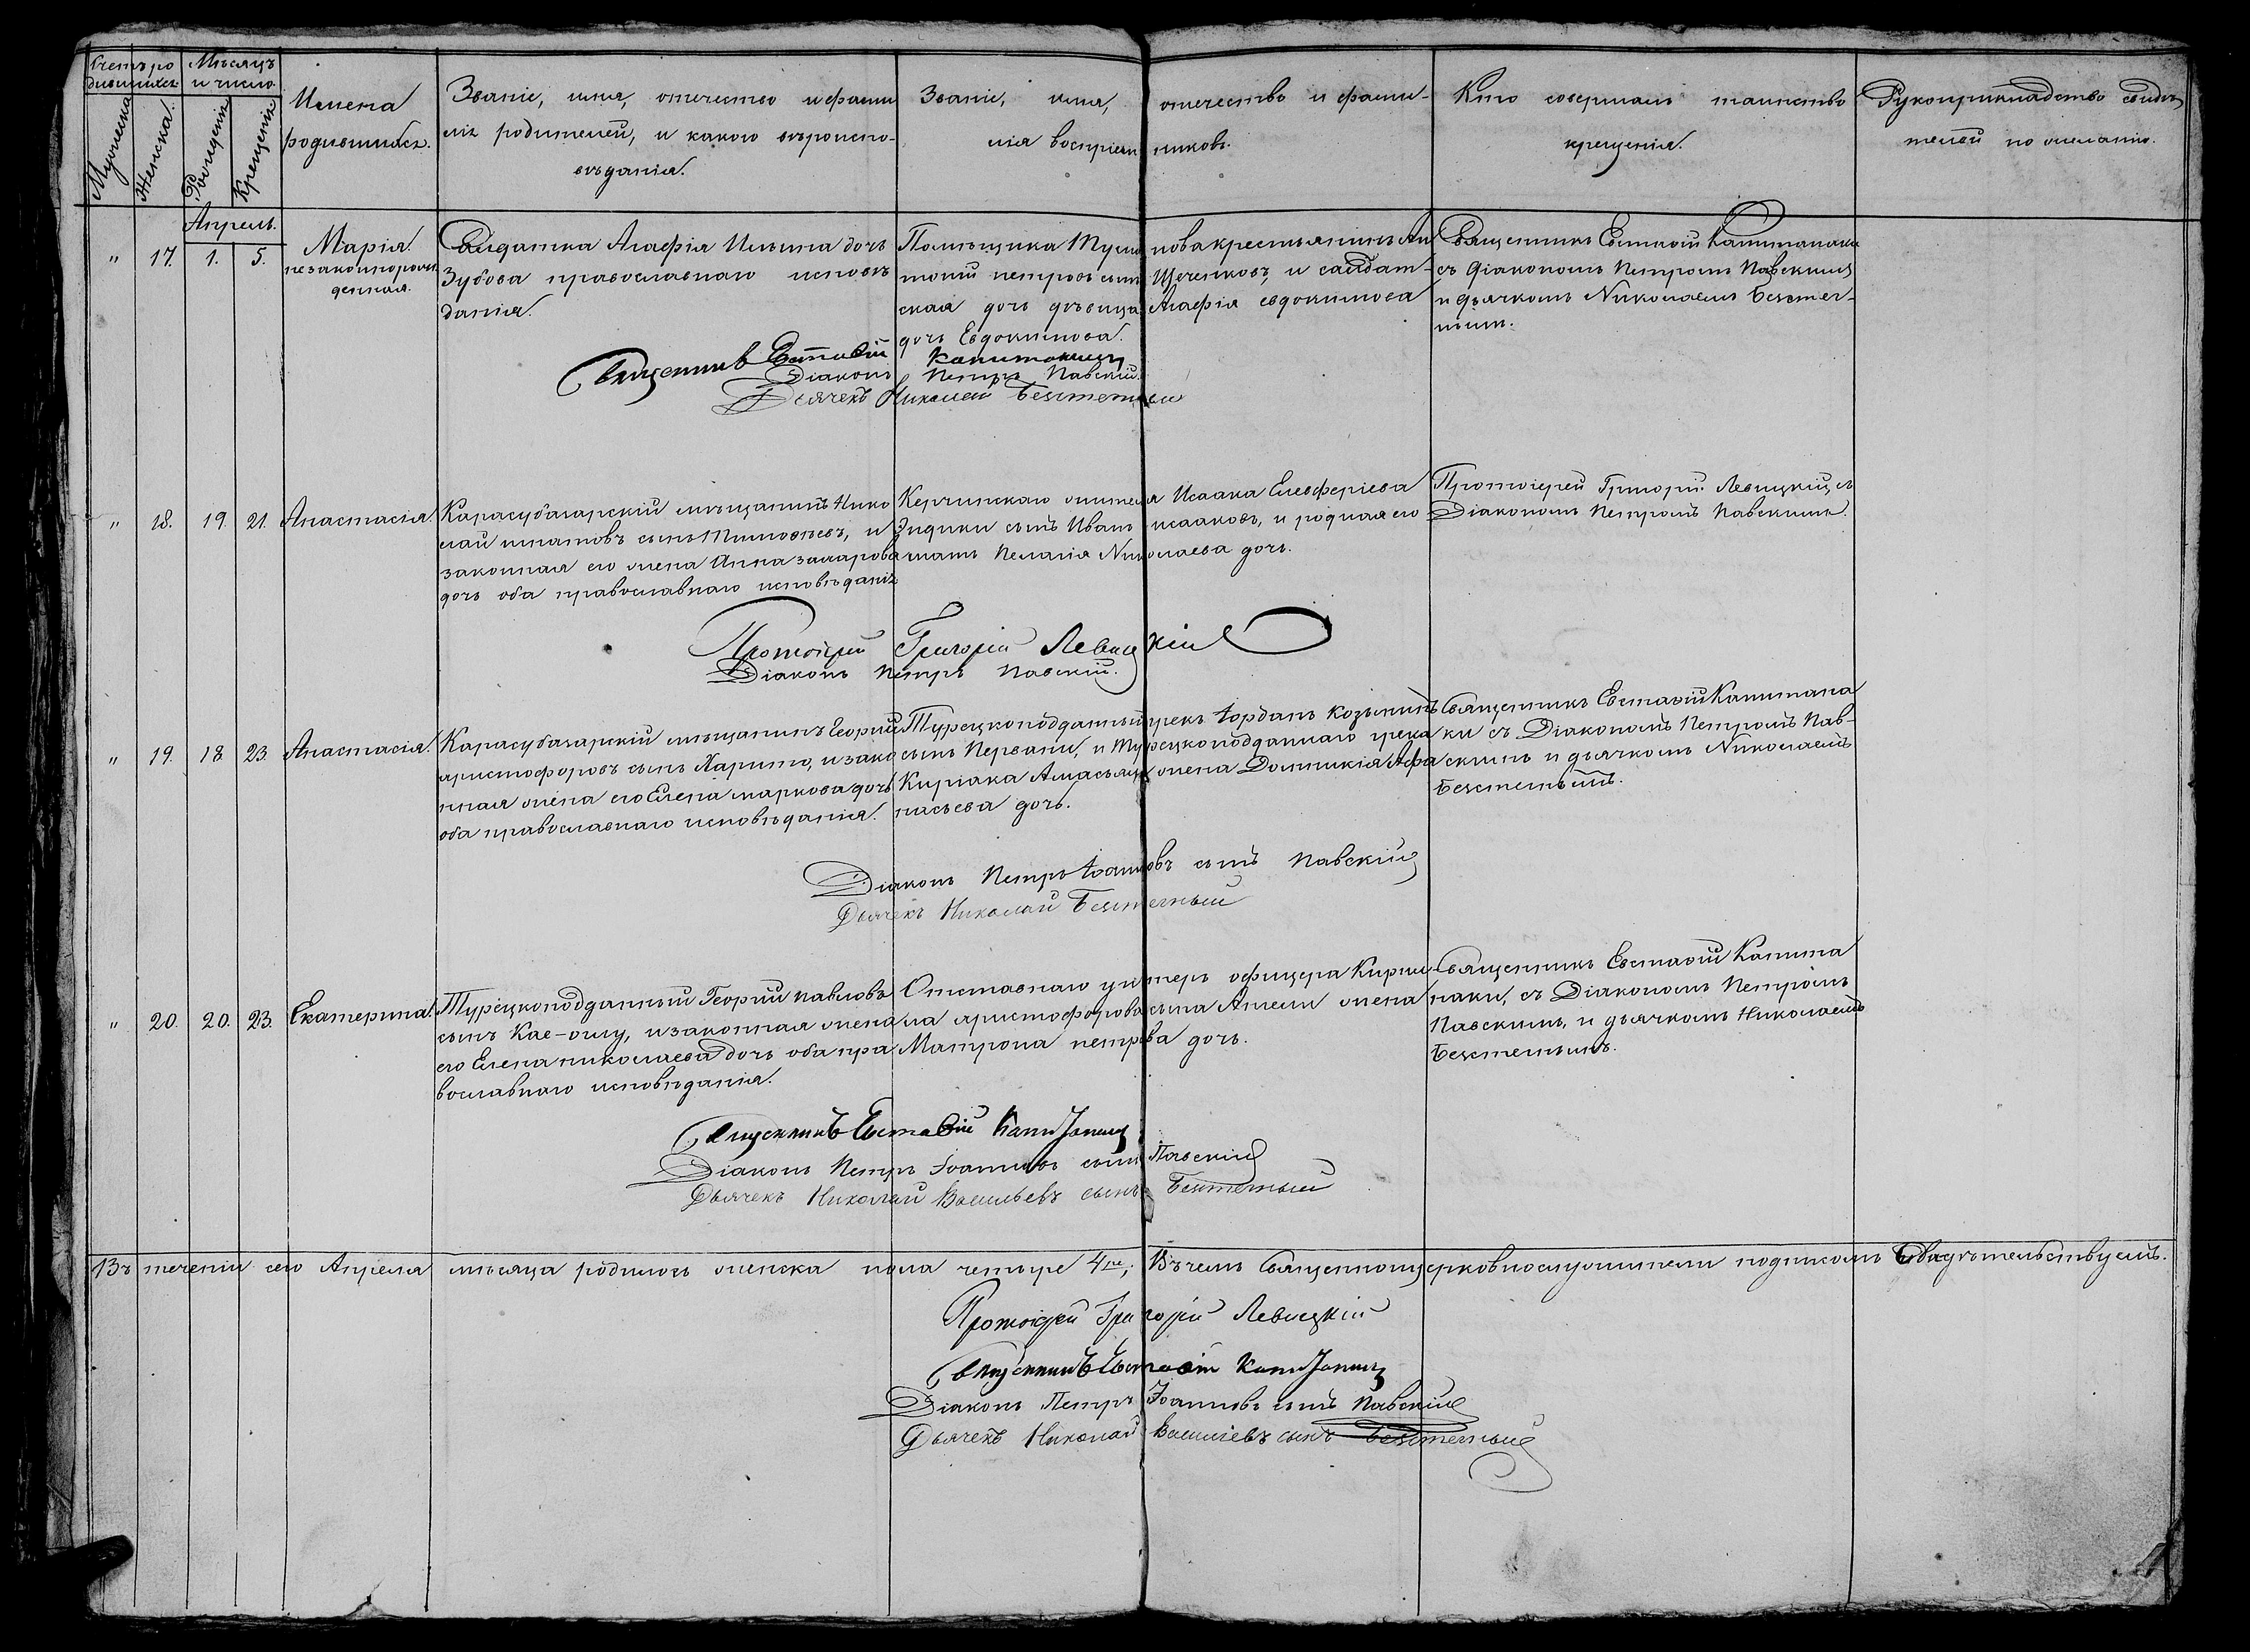 Счетъ ро
дившихся.
Мѣсяцъ
и число.
Мужеска
Женска.
Рожденія
Крещенія
Имена
родившихся.
Званіе, имя, отечество и фами
лія родителей, и какого вѣроиспо-
вѣданія.
Званіе, имя, отечество и фами-
лія воспріем никовъ.
Кто совершалъ таинство
крещенія.
Рукоприкладство свидѣ
телей по желанію.
Апрель.
" 17. 1. 5.
Марія.
незаконнорож
денная.
Салдатка Агафія Ильина дочь
Зубова православнаго исповѣ
данія.
Помѣщика Тулинова крестьянинъ Ан
тоній петровъ сынъ Щеченковъ, и салдат-
ская дочь дѣвица Агафія евдокимова
дочь Евдокимова.
Священникъ Евстафій Капитанаки
съ Діакономъ Петромъ Павскимъ
и дьячкомъ Николаемъ Безстет-
нымъ.
Священникъ Евстафій Капитанаки
Діаконъ Петръ Павскій.
Дьячекъ Николай
" 18. 19. 21.
Анастасія.
Карасубазарскій мѣщанинъ Нико
лай игнатовъ сынъ Тимофѣевъ, и
законная его жена Анна захарова
дочь оба православнаго исповѣданія
Керчинскаго жителя Исаака Елевферіева
сынъ Иванъ исааковъ, и родная его
мать Пелагія Николаева дочь.
Протоіерей Григорій Левицкій, съ
Діакономъ Петромъ Павскимъ.
Протоіерей Григорій Левицкій
Діаконъ Петръ Павскій.
" 19. 18. 23.
Анастасія.
Карасубазарскій мѣщанинъ Георгій
христофоровъ сынъ Харито, и зако
нная жена его Елена маркова дочь
оба православнаго исповѣданія.
Турецкоподданный грекъ Іорданъ Козьминъ
сынъ Первани, и Турецкоподданнаго грека
Киріака жена Домникія Афа
насьева дочь.
Священникъ Евстафій Капитана
ки съ Діакономъ Петромъ Пав-
скимъ и дьячкомъ Николаемъ
Діаконъ Петръ Іоанновъ сынъ Павскій
Дьячекъ Николай
" 20. 20. 23.
Екатерина.
Турецкоподданный Георгій павловъ
сынъ Кае-оглу, и законная жена
его Елена николаева дочь оба пра
вославнаго исповѣданія.
Отставнаго унтеръ офицера Кирил
ла христофорова сына Ангели жена
Матрона петрова дочь.
Священникъ Евстафій Капита
наки, съ Діакономъ Петромъ
Павскимъ, и дьячкомъ Николаемъ
Священникъ Евстафій Капитанаки
Діаконъ Петръ Іоанновъ сынъ Павскій
Дьячекъ Николай Васильевъ сынъ
Въ теченіи сего Апреля мѣсяца родилось женска пола четыре 4ре, Въ чемъ Священноцерковнослужители подписомъ Свидѣтельствуемъ.
Протоіерей Григорій Левицкій
Священникъ Евстафій Капитанаки
Діаконъ Петръ Іоанновъ сынъ Павскій
Дьячекъ Николай Васильевъ сынъ